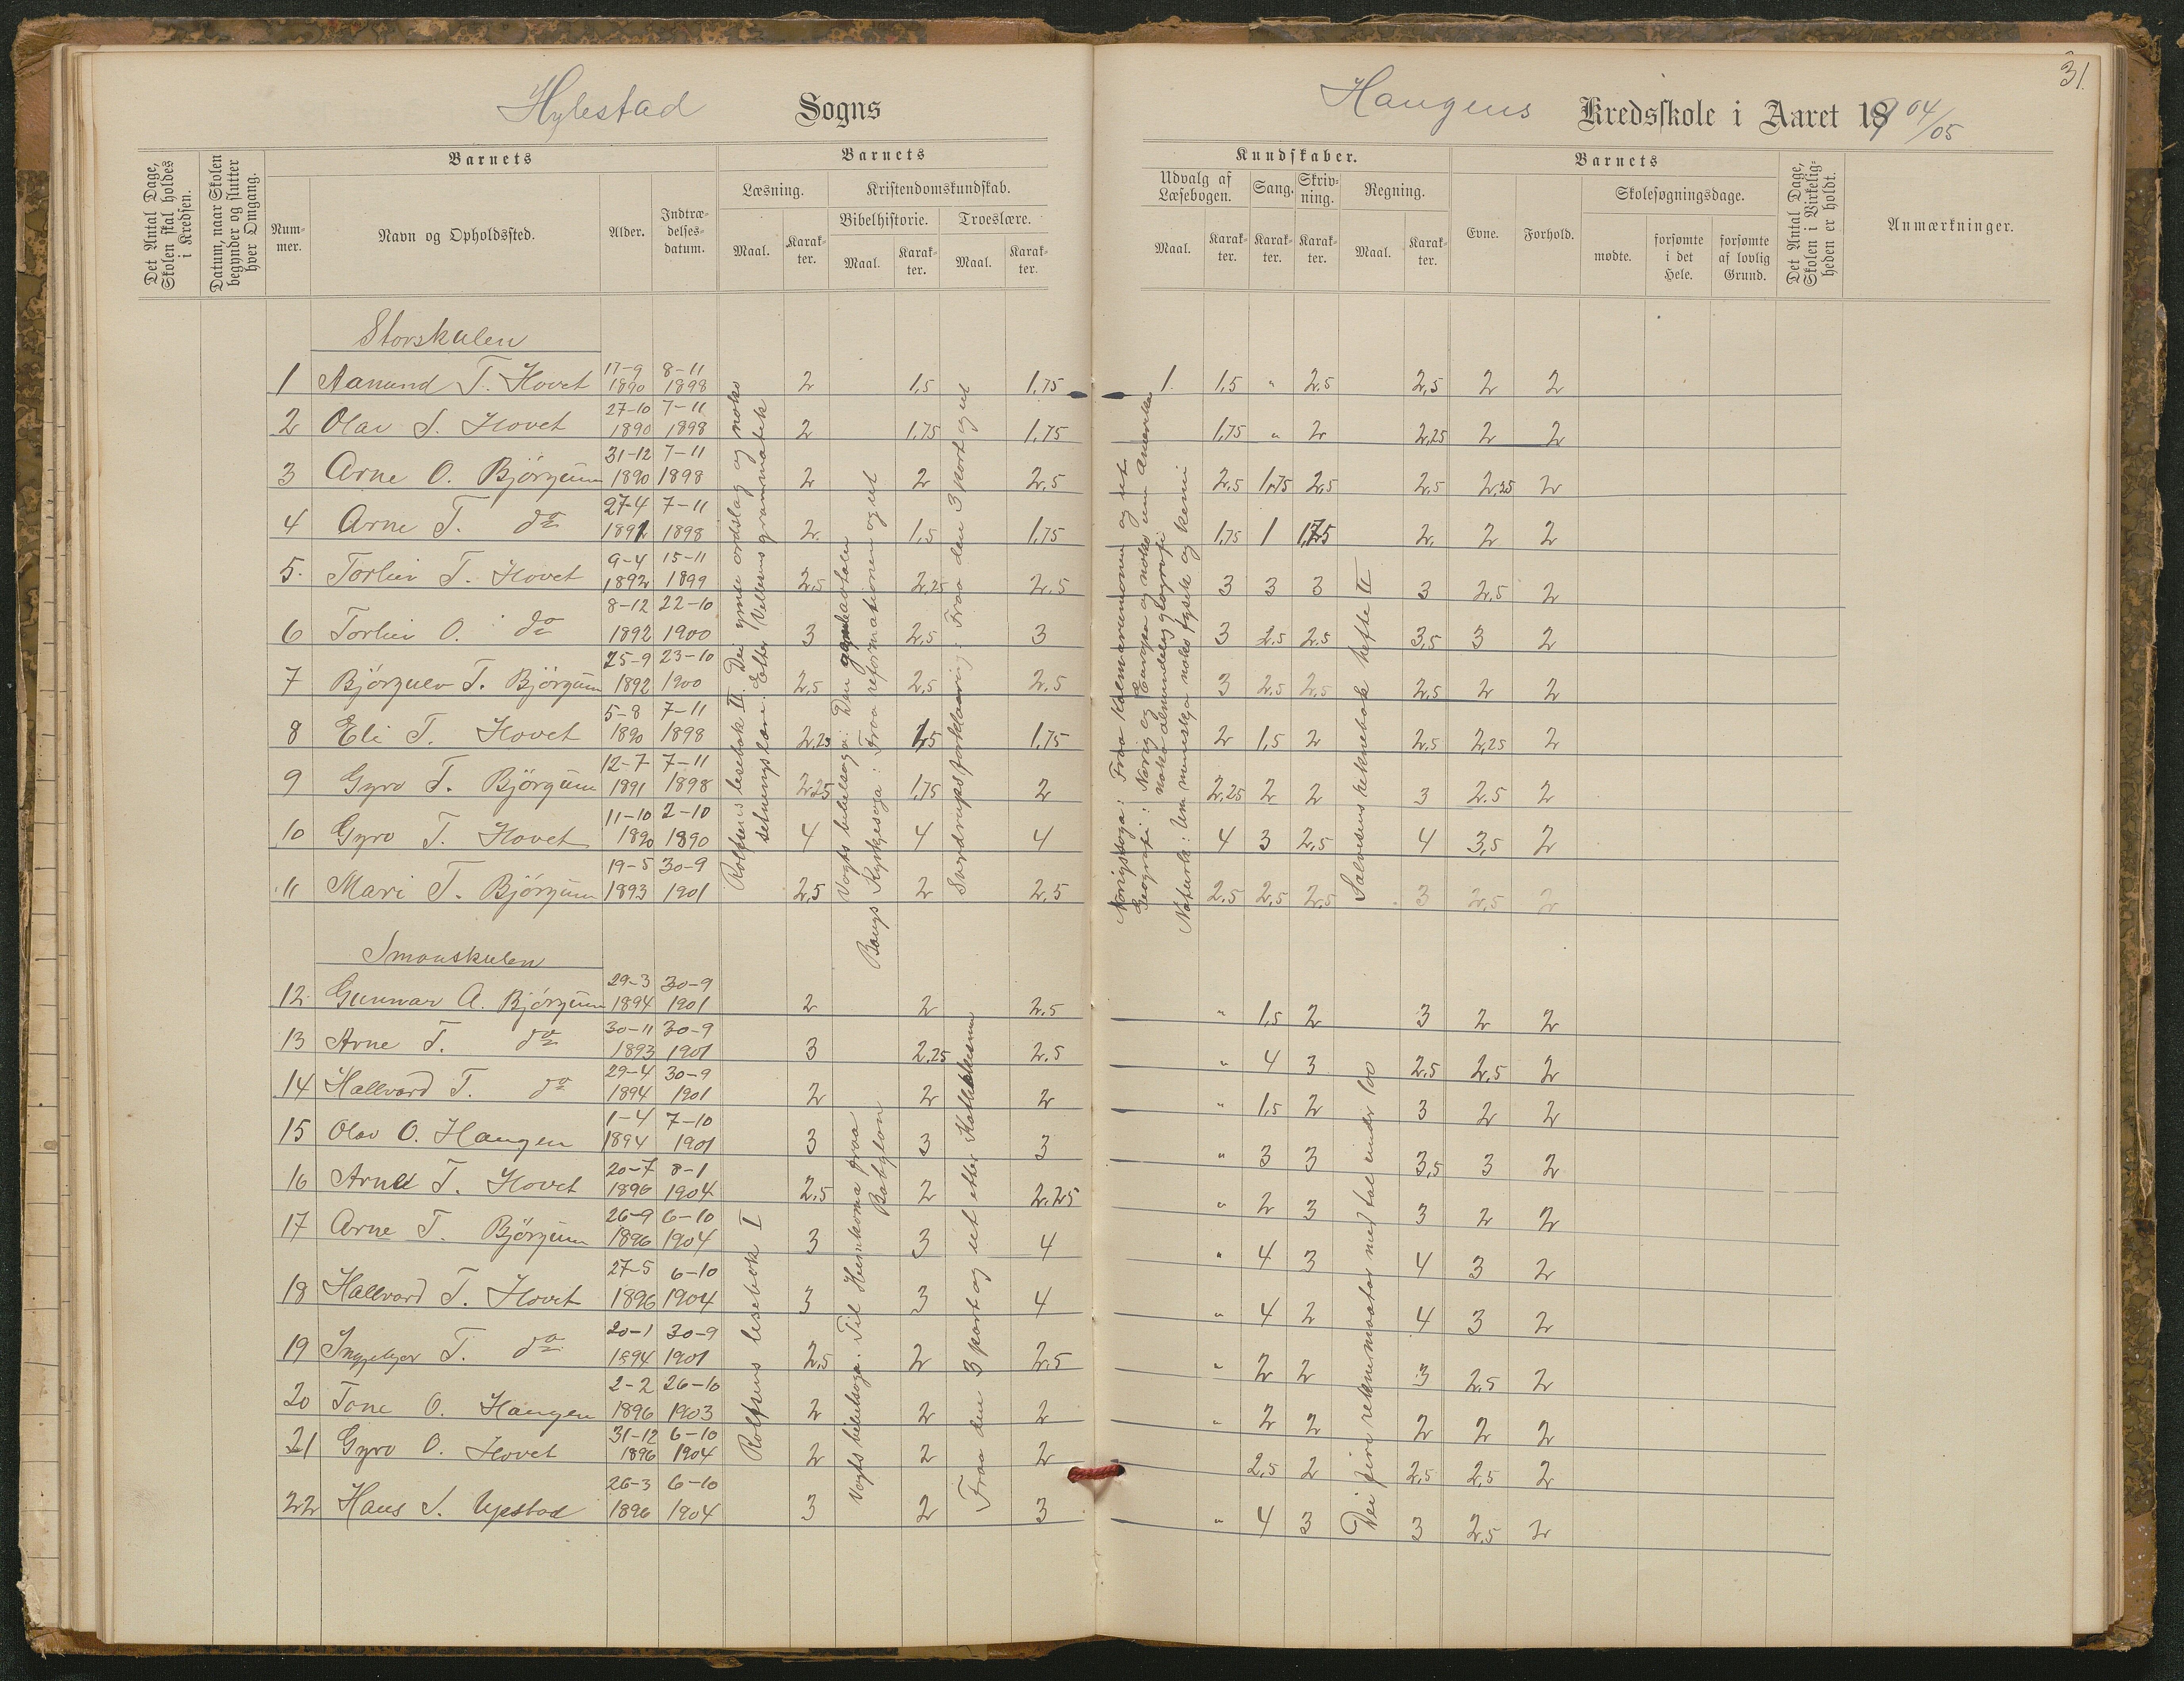 31.
Hylestad Sogns
Haugens Kredsskole i Aaret 1904/05
Det Antal Dage, Skolen skal holdes i Kredsen.
Datum, naar Skolen begynder og slutter hver Omgang.
Barnets
Nummer.
Navn og Opholdssted.
Alder.
Indtrædelsesdatum.
Barnets
Læsning.
Maal.
Karakter.
Kristendomskundskab.
Bibelhistorie.
Maal.
Karakter.
Troeslære.
Maal.
Karakter.
Kundskaber.
Udvalg af Læsebogen.
Maal.
Karakter.
Sang.
Karakter.
Skrivning.
Karakter.
Regning.
Maal.
Karakter.
Barnets
Evne.
Forhold.
Skolesøgningsdage.
mødte.
forsømte i det Hele.
forsømte af lovlig Grund.
Det Antal Dage, Skolen i Virkeligheden er holdt.
Anmærkninger.
Storskulen
1 Aanund T. Hovet 17-9 1890 8-11 1898 2 1,5 1,75 1. 1,5 " 2,5 2,5 2 2
2 Olav S. Hovet 27-10 1890 7-11 1898 2 1,75 1,75 1,75 " 2 2,25 2 2
3 Arne O. Björgum 31-12 1890 7-11 1898 2 2 2,5 2,5 1,75 2,5 2,5 2,25 2
4 Arne T. do 27-4 1891 7-11 1898 2. 1,5 1,75 1,75 1 1,75 2, 2 2
5. Torleiv T. Hovet 9-4 1892 15-11 1899 2,5 2,25 2,5 3 3 3 3 2,5 2
6 Torleiv O. do 8-12 1892 22-10 1900 3 2,5 3 3 2,5 2,5 3,5 3 2
7 Björgulv T. Björgum 25-9 1892 23-10 1900 2,5 2,5 2,5 3 2,5 2,5 2,5 2 2
8 Eli T. Hovet 5-8 1890 7-11 1898 2,25 1,5 1,75 2 1,5 2 2,5 2,25 2
9 Gyro T. Björgum 12-7 1891 7-11 1898 2,25 1,75 2 2,25 2 2 3 2,5 2
10 Gyro T. Hovet 11-10 1890 2-10 1890 4 4 4 4 3 2,5 4 3,5 2
11 Mari T. Björgum 19-5 1893 30-9 1901 2,5 2 2,5 2,5 2,5 2,5 3 2,5 2
Rolfsens lesebok III. Dei ymse ordslag og noko
setningslære. Etter Vellesens grammatik
Vogts bibelsoga: Den gamle avtalen
Bangs Kyrkjesoga: Fraa reformationen og ut
Sverdrups forklaaring: Fraa den 3 part og ut
Norigssoga: Fraa Kalmarunionen og ut
Geografi: Norig og Europa og noko um Amerika
noko aalmindeleg geografi
Naturk: Um menneskja noko fysik og kemi
Salvesens reknebok hefte III
Smaaskulen
12 Gunnar A. Björgum 29-3 1894 30-9 1901 2 2 2,5 " 1,5 2 3 2 2
13 Arne T. do 30-11 1893 30-9 1901 3 2,25 2,5 " 4 3 2,5 2,5 2
14 Hallvard T. do 29-4 1894 30-9 1901 2 2 2 " 1,5 2 3 2 2
15 Olav O. Haugen 1-4 1894 7-10 1901 3 3 3 " 3 3 3,5 3 2
16 Arne T. Hovet 20-7 1896 8-1 1904 2,5 2 2,25 " 2 3 3 2 2
17 Arne T. Björgum 26-9 1896 6-10 1904 3 3 4 " 4 3 4 3 2
18 Hallvard T. Hovet 27-5 1896 6-10 1904 3 3 4 " 4 2 4 3 2
19 Ingebjor T. do 20-1 1894 30-9 1901 2,5 2 2,5 " 2 2 3 2,5 2
20 Tone O. Haugen 2-2 1896 26-10 1903 2 2 2 " 2 2 2 2 2
21 Gyro O. Hovet 31-12 1896 6-10 1904 2 2 2 2,5 2 2,5 2,5 2
22 Hans S. Upstad 26-3 1896 6-10 1904 3 2 3 " 4 3 3 2,5 2
Rolfsens lesebok I
Vogts bibelsoga. Til Heimkoma fraa
Babylon
Fraa den 3 part og ut etter Katekismen
Dei fire reknemaatar med tal under 100